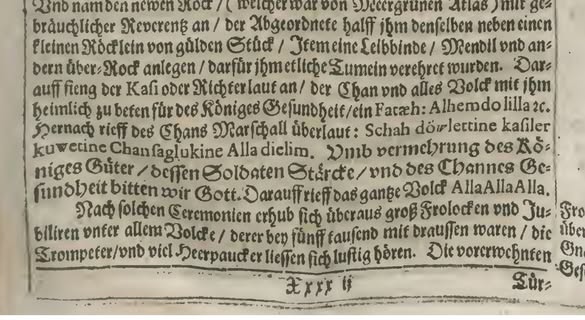 Vnd nam den newen Rock / (welcher war von Meergrünen Atlas) mit ge-
bräuchlicher Reverentz an / der Abgeordnete halff jhm denselben neben einen
kleinen Röcklein von gülden Stück / Item eine Leibbinde / Mendil vnd an-
dern über-Rock anlegen / darfür jhm etliche Tumein verehret wurden. Dar-
auff fieng der Kasi oder Richter laut an / der Chan vnd alles Volck mit jhm
heimlich zu beten für des Königes Gesundheit / ein Fatæh: Alhemdo lilla ꝛc.
Hernach rieff des Chans Marschall überlaut: Schah döwlettine kasiler
kuwetine Chansaglukine Alla dielim. Vmb vermehrung des Kö-
niges Güter / dessen Soldaten Stärcke / vnd des Channes Ge-
sundheit bitten wir Gott. Darauff rieff das gantze Volck AllaAllaAlla.
Nach solchen Ceremonien erhub sich überaus groß Frolocken vnd Ju-
biliren vnter allem Volcke / derer bey fünff tausend mit draussen waren / die
Trompeter / vnd viel Heerpaucker liessen sich lustig hören. Die vorerwehnten
Xxxx ij
Tür-
Fro
über
Gn
Ges